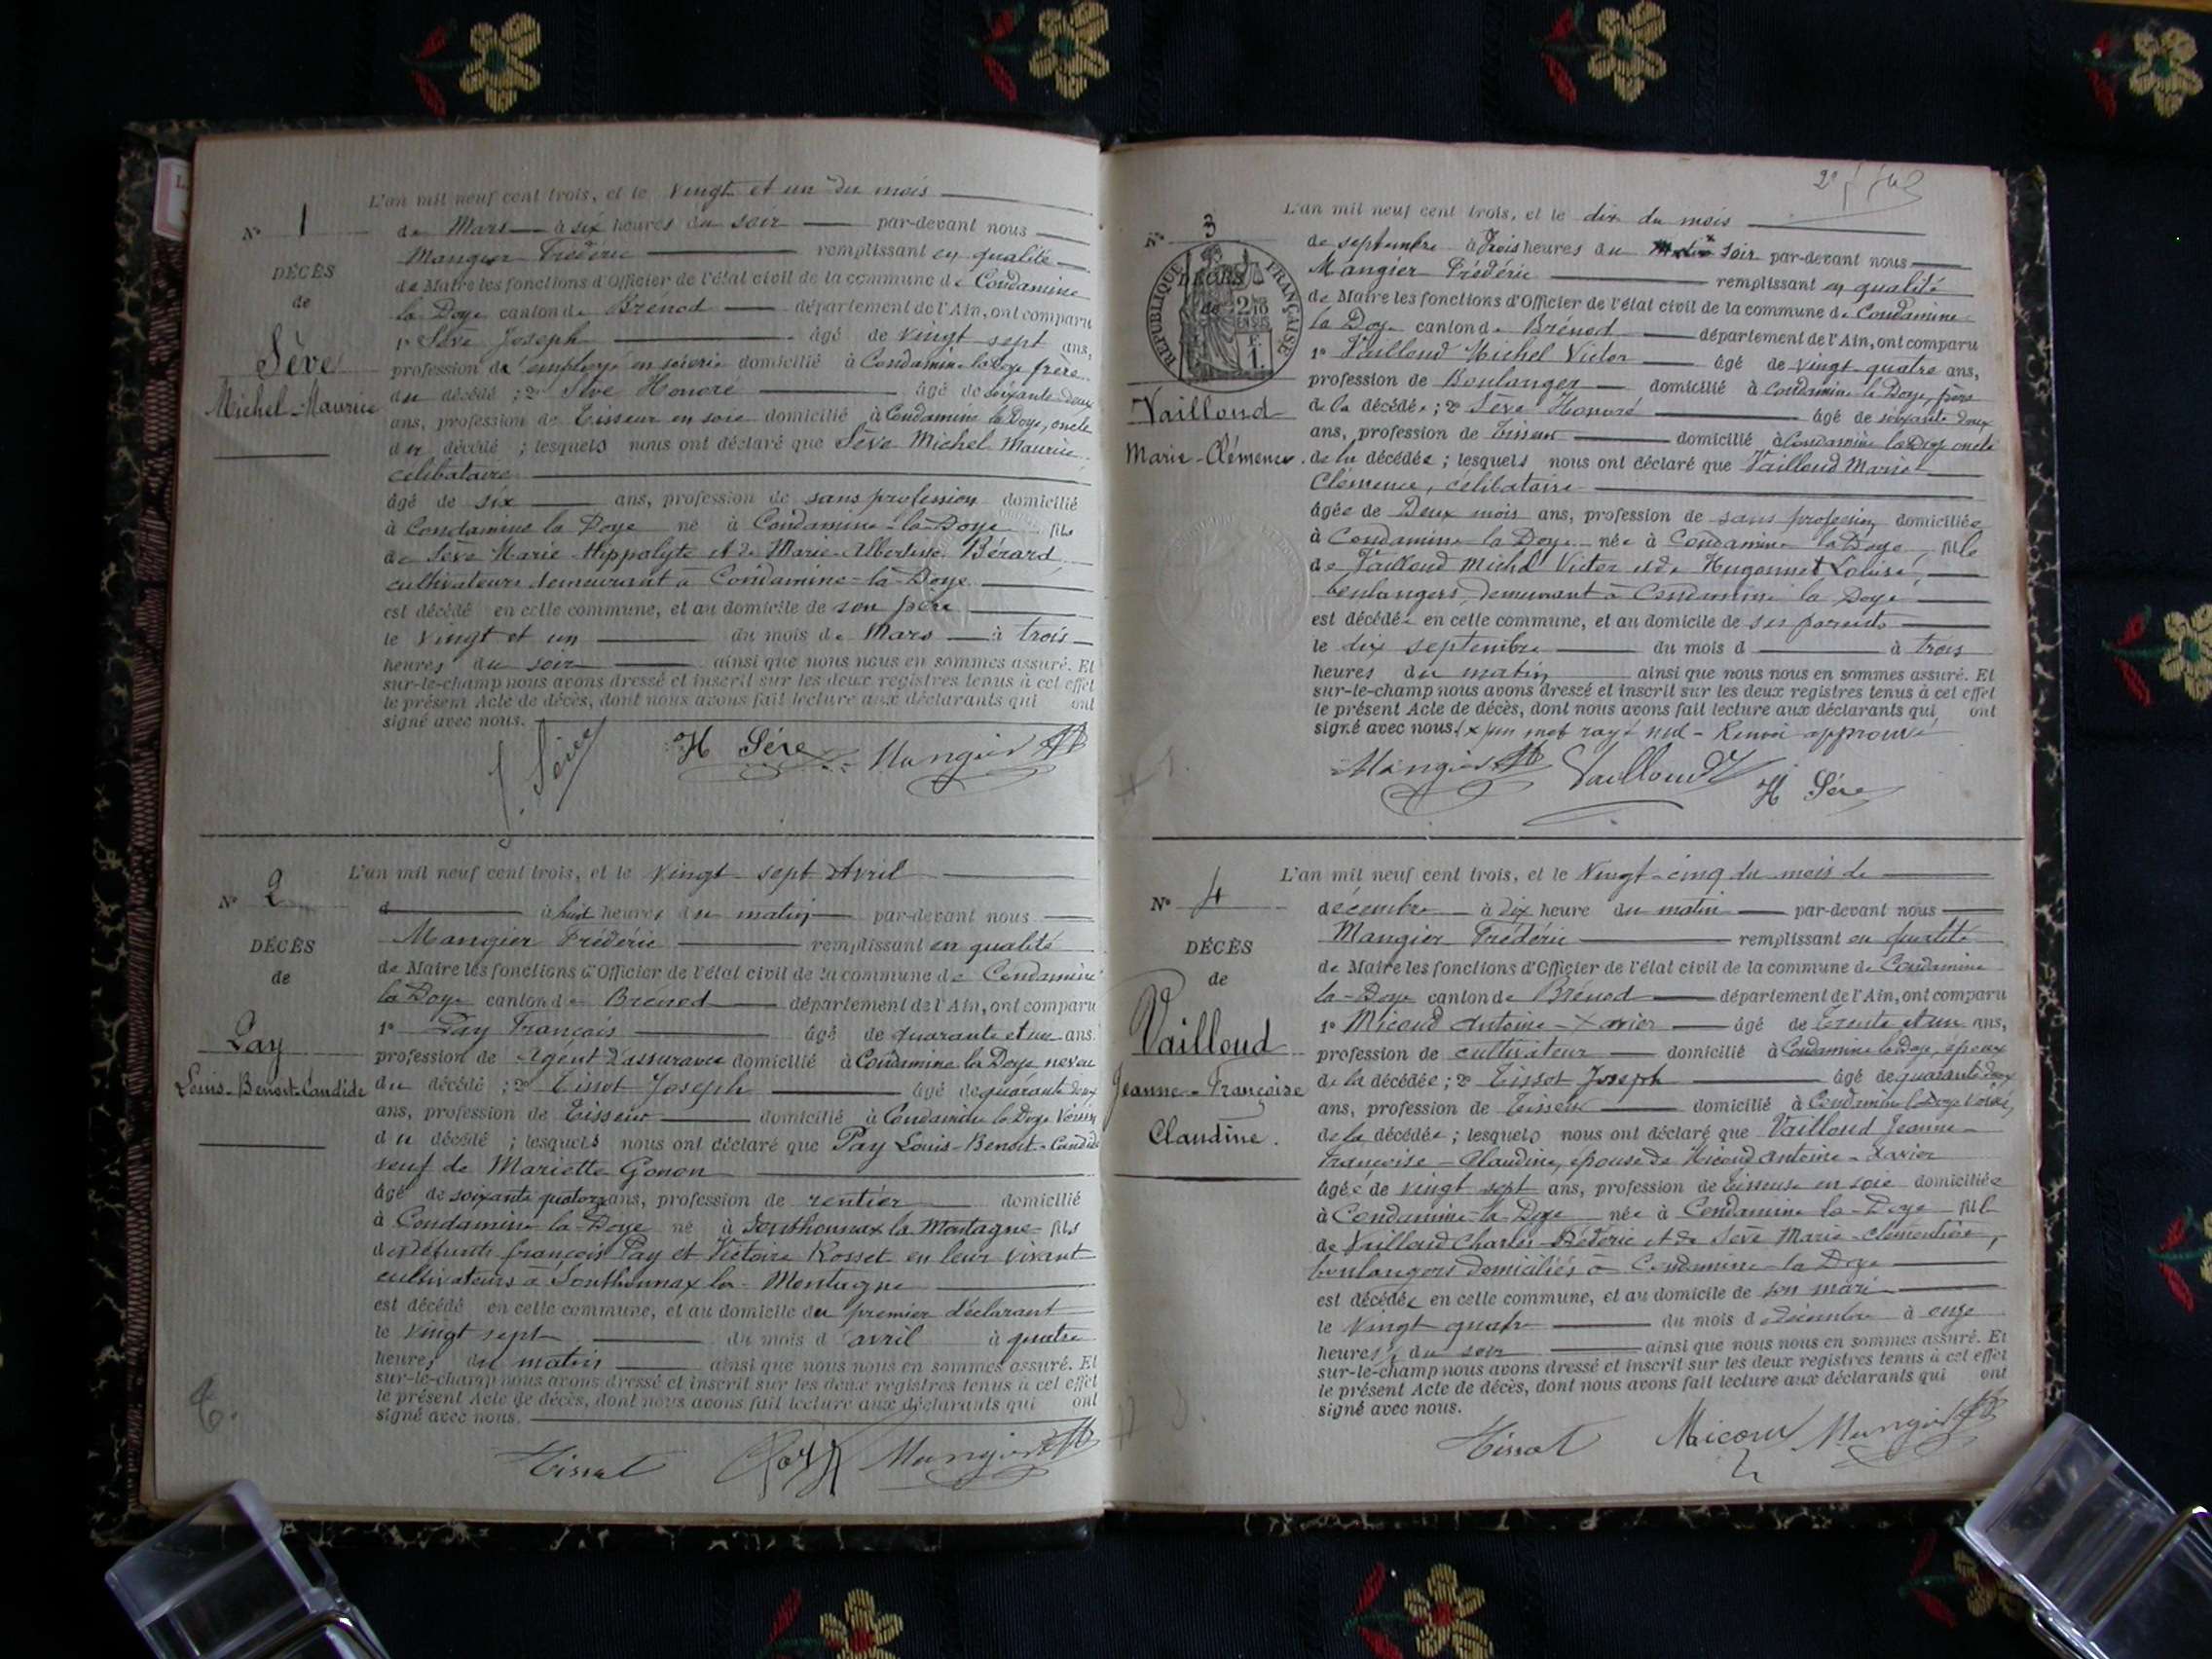 L'an mil neuf cent trois, et le vingt et un du mois
N° 1
de Mars à six heures du soir par-devant nous
Mangier Frédéric remplissant en qualité
DÉCÈS
de Maire les fonctions d'Officier de l'état civil de la commune de Condamine
de
la Doye canton de Brénod département de l'Ain, ont comparu
1° Sève Joseph âgé de vingt sept ans,
Sève
profession d'employé en soierie domicilié à Condamine la Doye frère
Michel-Maurice
du décédé ; 2° Sève Honoré âgé de soixante deux
ans, profession de Tisseur en soie domicilié à Condamine la Doye, oncle
du décédé ; lesquels nous ont déclaré que Sève Michel Maurice
célibataire
âgé de six ans, profession de sans profession domicilié
à Condamine la Doye né à Condamine-la-Doye fils
de Sève Marie Hippolyte et de Marie Bérard
cultivateurs demeurant à Condamine-la-Doye
est décédé en cette commune, et au domicile de son père
le vingt et un du mois de Mars à trois
heures du soir ainsi que nous nous en sommes assuré. Et
sur-le-champ nous avons dressé et inscrit sur les deux registres tenus à cet effet
le présent Acte de décès, dont nous avons fait lecture aux déclarants qui ont
signé avec nous.
J. Sève H Sève Mangier
L'an mil neuf cent trois, et le vingt-sept Avril
N° 2
à huit heures du matin par-devant nous
Mangier Frédéric remplissant en qualité
DÉCÈS
de Maire les fonctions d'Officier de l'état civil de la commune de Condamine
de
la Doye canton de Brénod département de l'Ain, ont comparu
1° Pay François âgé de quarante et un ans
Pay
profession de Agent d'assurance domicilié à Condamine la Doye neveu
Louis-Benoit-Candide
du décédé ; 2° Tissot Joseph âgé de quarante deux
ans, profession de Tisseur domicilié à Condamine la Doye Voisin
du décédé ; lesquels nous ont déclaré que Pay Louis-Benoit-Candide
veuf de Mariette Gonon
âgé de soixante quatorze ans, profession de rentier domicilié
à Condamine la-Doye né à Sonthonnax la Montagne fils
des défunts françois Pay et Victoire Rosset en leur vivant
cultivateurs à Sonthonnax la-Montagne
est décédé en cette commune, et au domicile du premier déclarant
le vingt sept du mois d'avril à quatre
heures du matin ainsi que nous nous en sommes assuré. Et
sur-le-champ nous avons dressé et inscrit sur les deux registres tenus à cet effet
le présent Acte de décès, dont nous avons fait lecture aux déclarants qui ont
signé avec nous.
Tissot Pay Mangier
2e
L'an mil neuf cent trois, et le dix du mois
N° 3
de septembre à trois heures du soir par-devant nous
Mangier Frédéric remplissant en qualité
RÉPUBLIQUE FRANÇAISE
DÉCÈS
de Maire les fonctions d'Officier de l'état civil de la commune de Condamine
de
la Doye canton de Brénod département de l'Ain, ont comparu
1° Vailloud Michel Victor âgé de vingt-quatre ans,
profession de Boulanger domicilié à Condamine la Doye, père
Vailloud
de la décédée ; 2° Sève Honoré âgé de soixante deux
ans, profession de Tisseur domicilié à Condamine la Doye oncle
Marie-Clémence
de la décédée ; lesquels nous ont déclaré que Vailloud Marie
Clémence, célibataire
âgée de Deux mois ans, profession de sans profession domiciliée
à Condamine la Doye née à Condamine la Doye, fille
de Vailloud Michel Victor et de Hugonnet Louise,
boulangers, demeurant à Condamine la Doye
est décédée en cette commune, et au domicile de ses parents
le dix septembre du mois d à trois
heures du matin ainsi que nous nous en sommes assuré. Et
sur-le-champ nous avons dressé et inscrit sur les deux registres tenus à cet effet
le présent Acte de décès, dont nous avons fait lecture aux déclarants qui ont
signé avec nous. (x) un mot rayé nul - Renvoi approuvé
Mangier Vailloud V H Sève
L'an mil neuf cent trois, et le Vingt-cinq du mois de
N° 4
décembre à dix heure du matin par-devant nous
Mangier Frédéric remplissant en qualité
DÉCÈS
de Maire les fonctions d'Officier de l'état civil de la commune de Condamine
de
la-Doye canton de Brénod département de l'Ain, ont comparu
1° Micoud Antoine-Xavier âgé de trente et un ans,
Vailloud
profession de cultivateur domicilié à Condamine la Doye, époux
Jeanne-Françoise
de la décédée ; 2° Tissot Joseph âgé de quarante deux
ans, profession de Tisseur domicilié à Condamine la Doye Voisin,
Claudine.
de la décédée ; lesquels nous ont déclaré que Vailloud Jeanne-
Françoise-Claudine, épouse de Micoud Antoine-Xavier
âgée de vingt sept ans, profession de Tisseuse en soie domiciliée
à Condamine-la-Doye née à Condamine la-Doye fille
de Vailloud Charles-Frédéric et de Sève Marie-Clémentine,
boulangers domiciliés à Condamine-la Doye
est décédée en cette commune, et au domicile de son mari
le Vingt quatre du mois de décembre à onze
heures du soir ainsi que nous nous en sommes assuré. Et
sur-le-champ nous avons dressé et inscrit sur les deux registres tenus à cet effet
le présent Acte de décès, dont nous avons fait lecture aux déclarants qui ont
signé avec nous.
Tissot Micoud Mangier